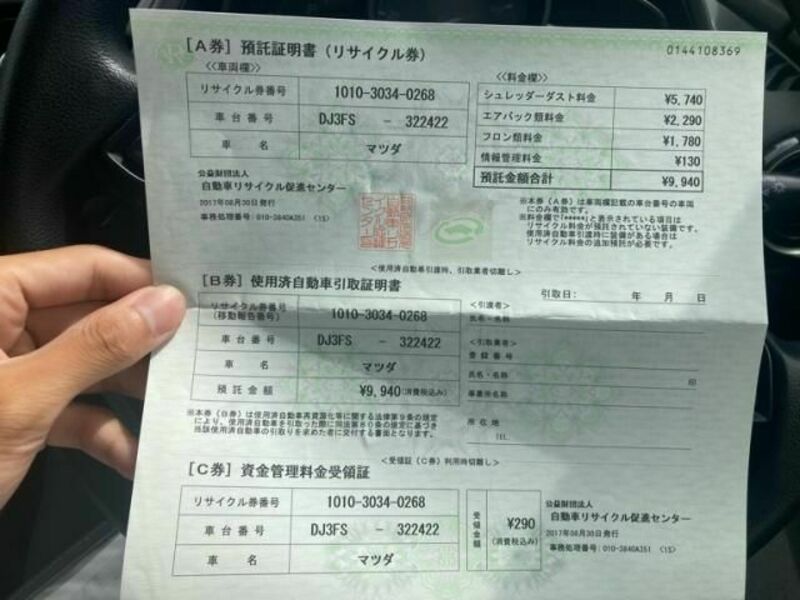 [A券] 預託証明書（リサイクル券）
0144108369
<<車両欄>>
リサイクル券番号 1010-3034-0268
車台番号 DJ3FS - 322422
車名 マツダ
<<料金欄>>
シュレッダーダスト料金 ¥5,740
エアバッグ類料金 ¥2,290
フロン類料金 ¥1,780
情報管理料金 ¥130
預託金額合計 ¥9,940
公益財団法人
自動車リサイクル促進センター
2017年08月30日発行
事務処理番号:010-3840A351 (1S)
※本券（A券）は車両欄記載の車台番号の車両
にのみ有効です。
※料金欄で「*****」と表示されている項目は
リサイクル料金が預託されていない装備です。
使用済自動車引渡時に装備がある場合は
リサイクル料金の追加預託が必要です。
<使用済自動車引渡時、引取業者切離し>
[B券] 使用済自動車引取証明書
引取日: 年 月 日
リサイクル券番号
(移動報告番号) 1010-3034-0268
車台番号 DJ3FS - 322422
車名 マツダ
預託金額 ¥9,940(消費税込み)
<引渡者>
氏名・名称
<引取業者>
登録番号
氏名・名称 印
事業所名称
所在地
TEL
※本券（B券）は使用済自動車再資源化等に関する法律第9条の規定
により、使用済自動車を引取った際に同法第80条の規定に基づき
当該使用済自動車の引取りを求めた者に交付する書面となります。
<受領証（C券）利用時切離し>
[C券] 資金管理料金受領証
リサイクル券番号 1010-3034-0268
車台番号 DJ3FS - 322422
車名 マツダ
受領金額 ¥290
(消費税込み)
公益財団法人
自動車リサイクル促進センター
2017年08月30日発行
事務処理番号:010-3840A351 (1S)